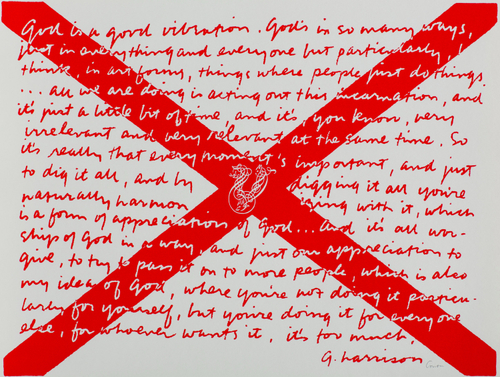 God is a good vibration. God's in so many ways,
just in everything and everyone but particularly, I
think, in art forms, things where people just do things.
... all we are doing is acting out this incarnation, and
it's just a little bit of time, and it's, you know, very
irrelevant and very relevant at the same time. So
it's really that every moment's important, and just
to dig it all, and by digging it all you're
naturally harmonizing with it, which
is a form of appreciation of God... and it's all wor-
ship of God in a way, and just our appreciation to
give, to try to pass it on to more people, which is also
my idea of God, where you're not doing it particu-
larly for yourself, but you're doing it for everyone
else, for whoever wants it, it's too much.
G. Harrison